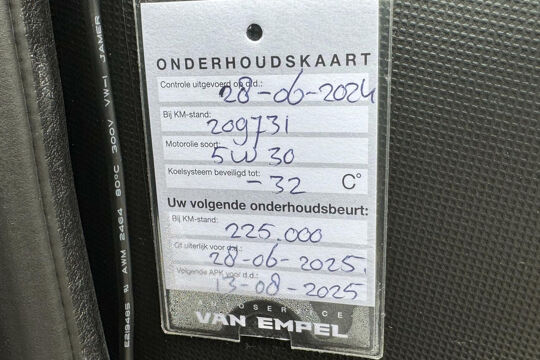 ONDERHOUDSKAART
Controle uitgevoerd op d.d.: 28-06-2024
Bij KM-stand: 209731
Motorolie soort: 5W30
Koelsysteem beveiligd tot: -32 C°
Uw volgende onderhoudsbeurt:
Bij KM-stand: 225.000
Of uiterlijk voor d.d.: 28-06-2025.
Volgende APK voor d.d.: 13-08-2025
AUTOSERVICE
VAN EMPEL
AWM 2464 80°C 300V VW-1